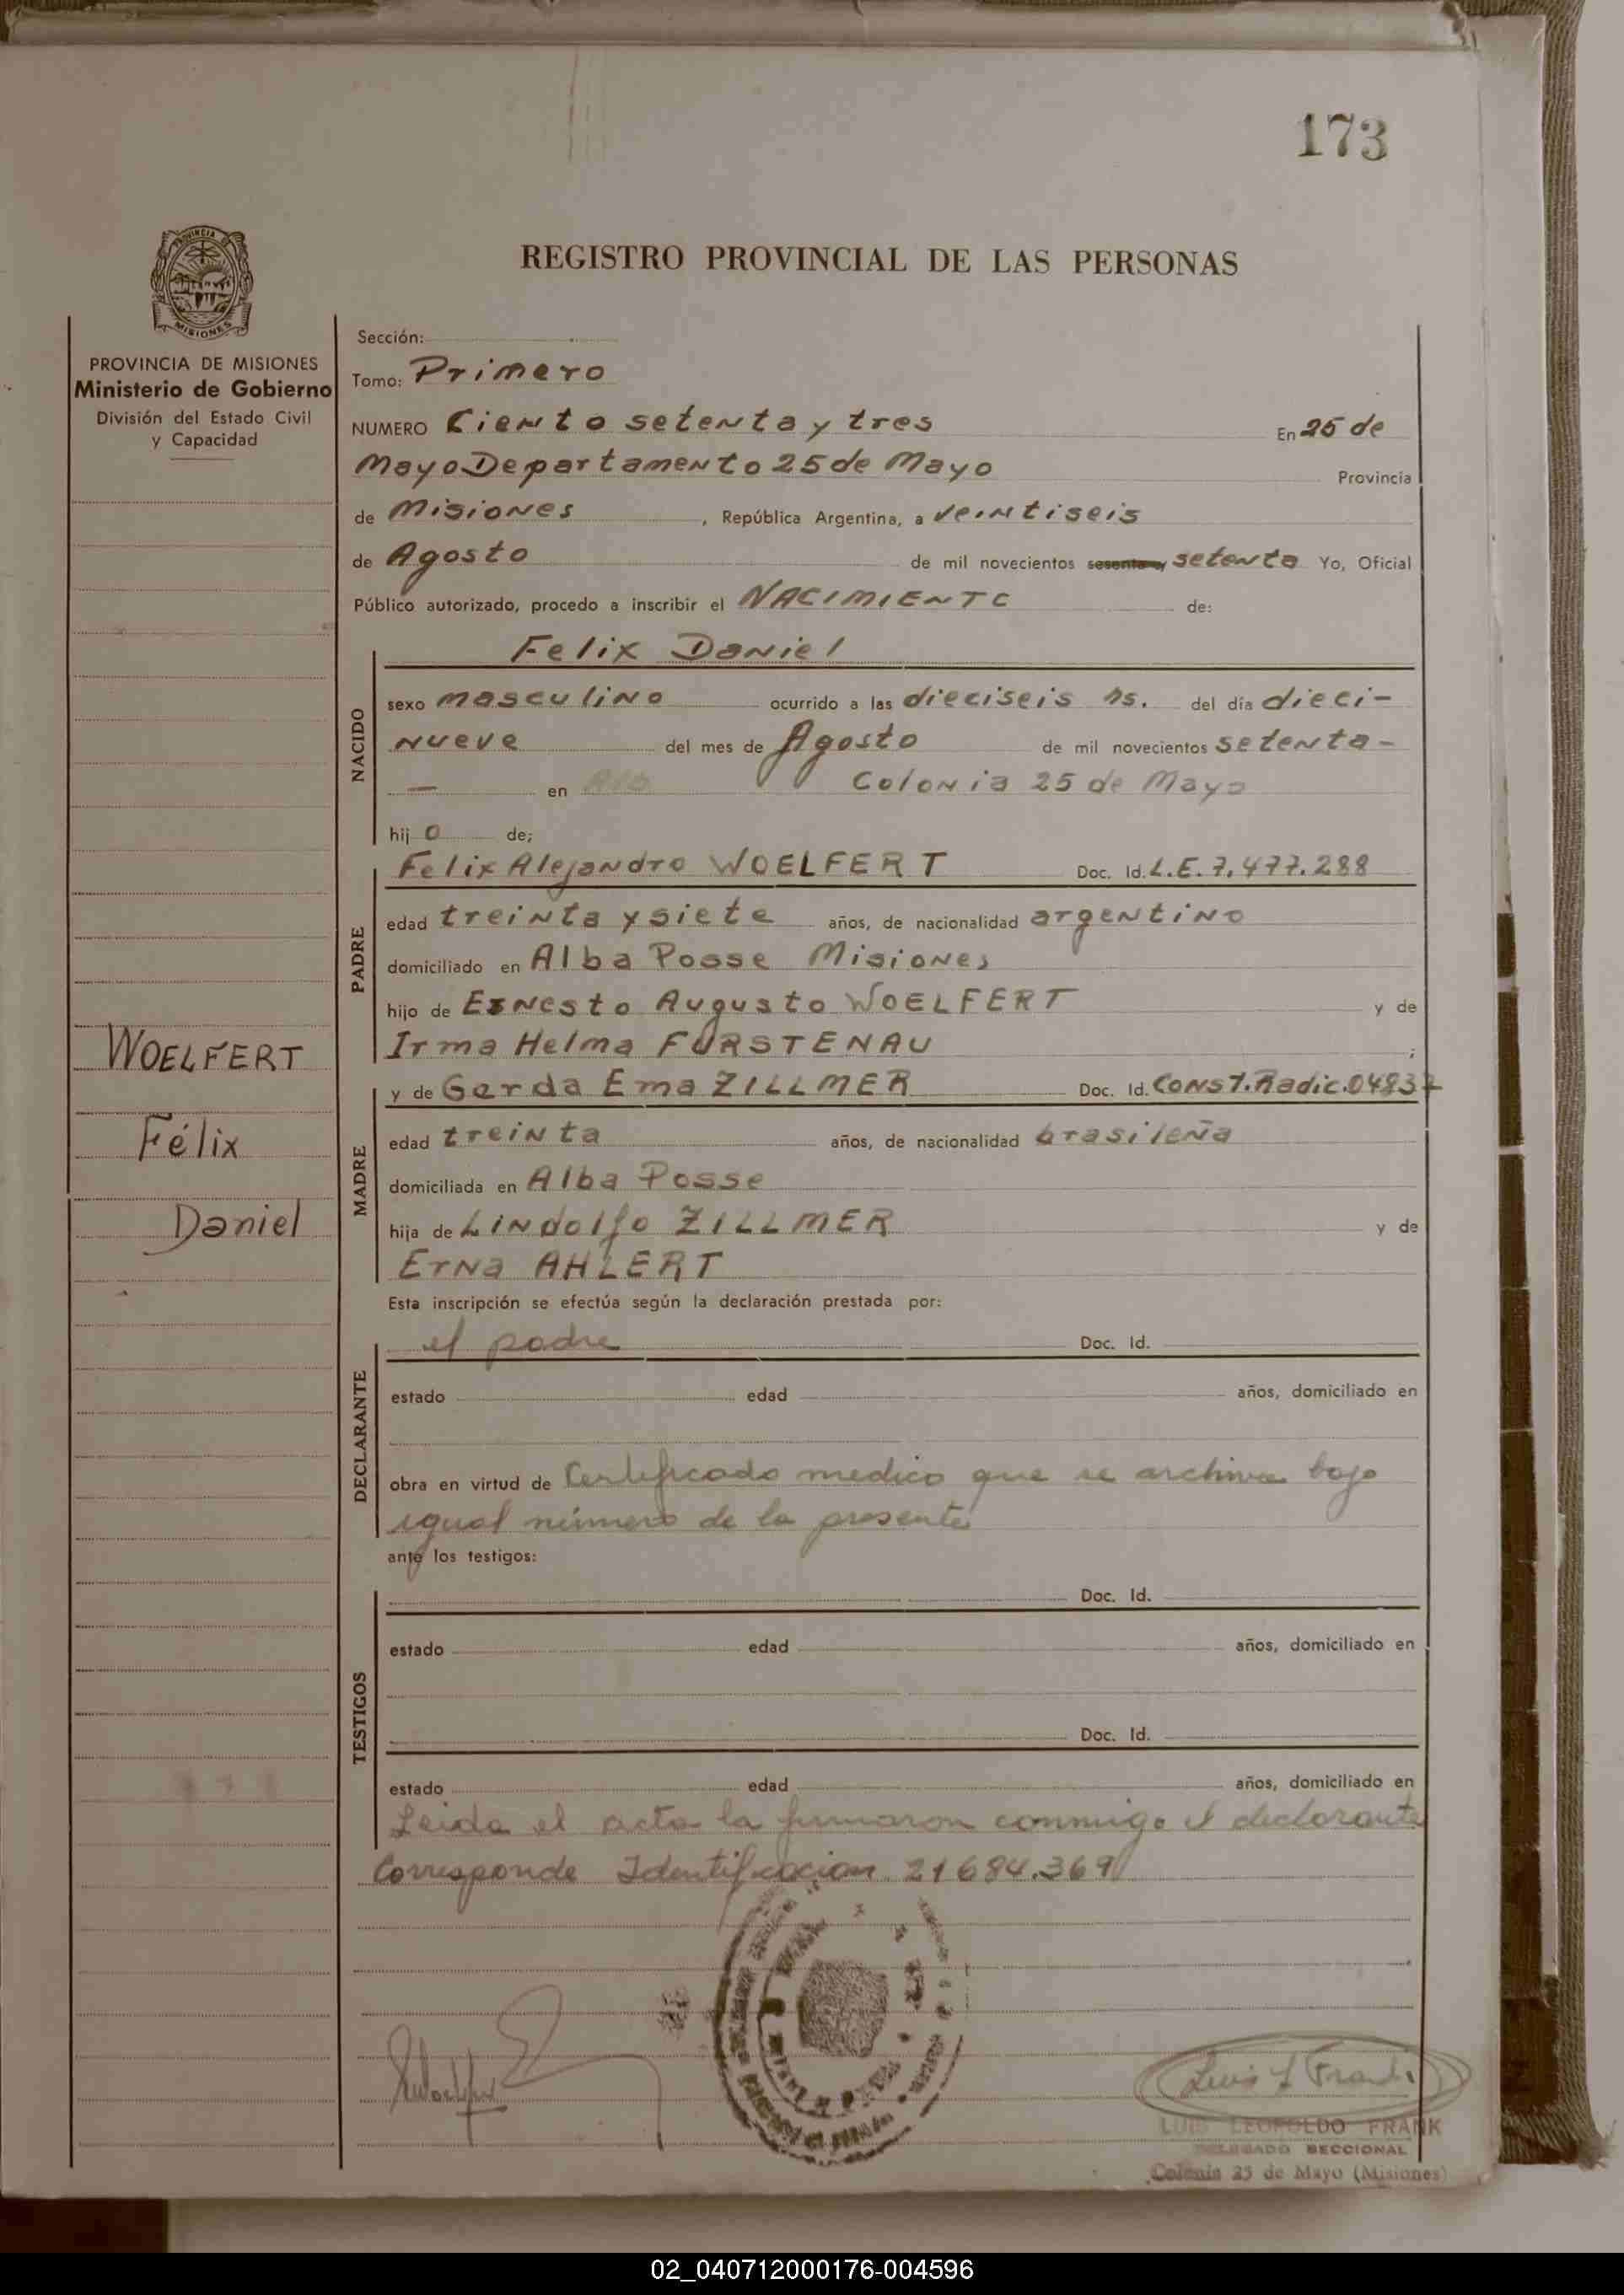 173
PROVINCIA DE
MISIONES
REGISTRO PROVINCIAL DE LAS PERSONAS
PROVINCIA DE MISIONES
Ministerio de Gobierno
División del Estado Civil
y Capacidad
WOELFERT
Félix
Daniel
Sección:
Tomo: Primero
NUMERO Ciento setenta y tres En 25 de
Mayo Departamento 25 de Mayo Provincia
de Misiones, República Argentina, a veintiseis
de Agosto de mil novecientos sesenta y setenta Yo, Oficial
Público autorizado, procedo a inscribir el NACIMIENTO de:
Felix Daniel
NACIDO
sexo masculino ocurrido a las dieciseis hs. del día dieci-
nueve del mes de Agosto de mil novecientos setenta-
— en Colonia 25 de Mayo
hijo de;
PADRE
Felix Alejandro WOELFERT Doc. Id. L.E. 7.477.288
edad treinta y siete años, de nacionalidad argentino
domiciliado en Alba Posse Misiones
hijo de Ernesto Augusto WOELFERT y de
Irma Helma FURSTENAU ;
MADRE
y de Gerda Ema ZILLMER Doc. Id. Const. Radic. 04837
edad treinta años, de nacionalidad brasileña
domiciliada en Alba Posse
hija de Lindolfo ZILLMER y de
Erna AHLERT
Esta inscripción se efectúa según la declaración prestada por:
DECLARANTE
el padre Doc. Id.
estado edad años, domiciliado en
obra en virtud de Certificado medico que se archiva bajo
igual número de la presente
ante los testigos:
TESTIGOS
Doc. Id.
estado edad años, domiciliado en
Doc. Id.
estado edad años, domiciliado en
Leida el acta la firmaron conmigo el declarante
Corresponde Identificacion 21684.369
Luis L Frank
LUIS LEOPOLDO FRANK
DELEGADO SECCIONAL
Colonia 25 de Mayo (Misiones)
02_040712000176-004596